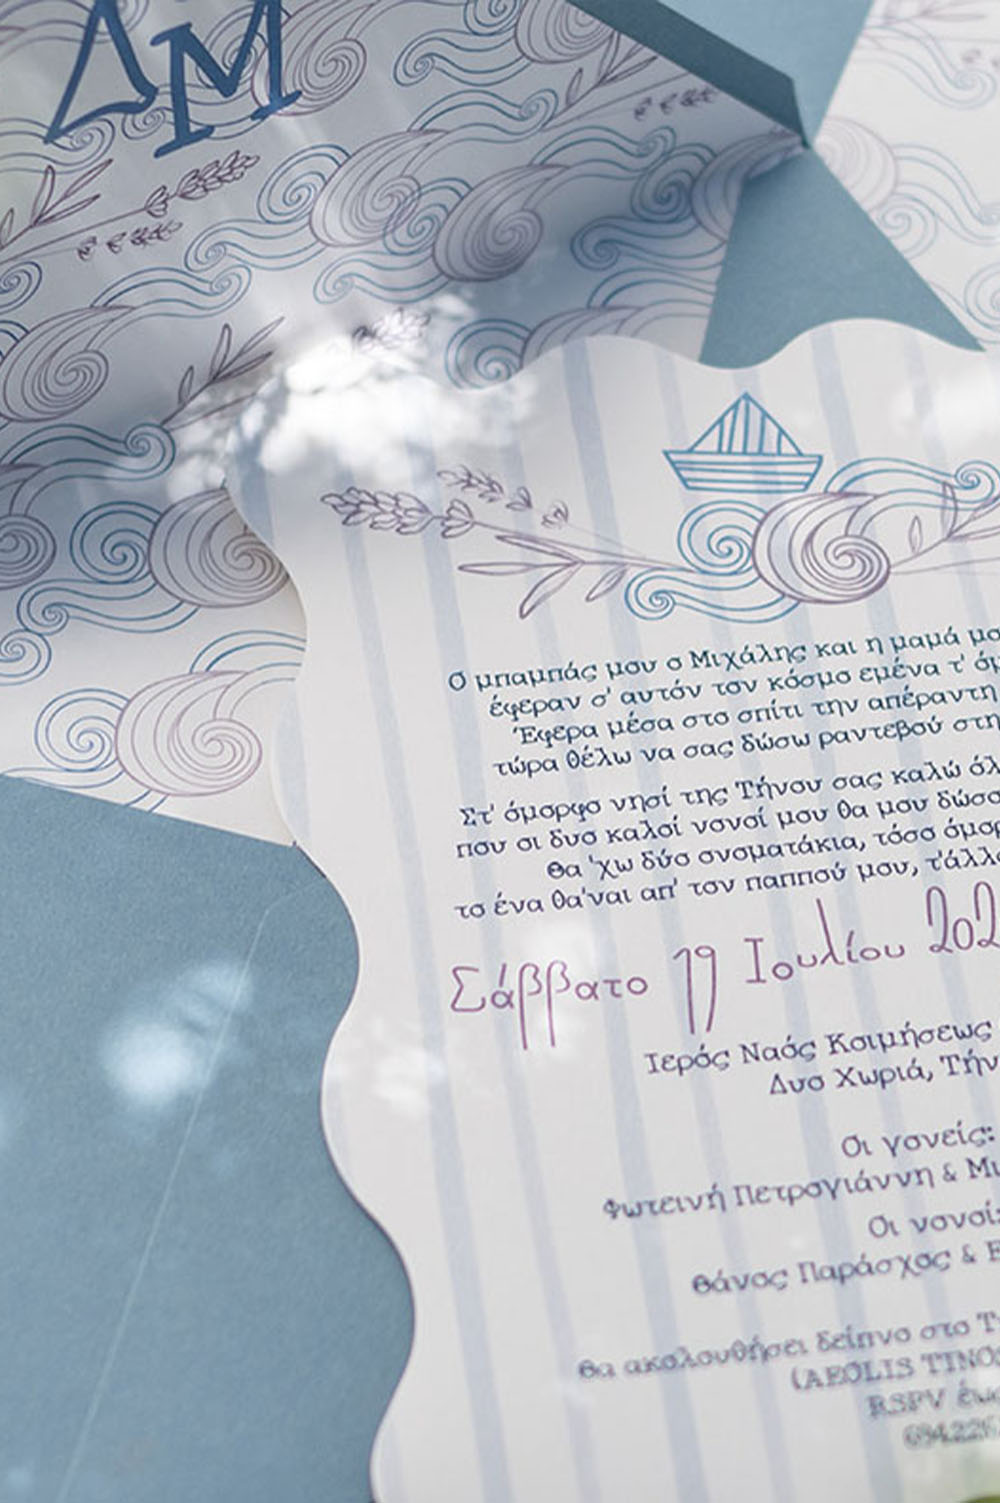 ΔΜ
Ο μπαμπάς μου ο Μιχάλης και η μαμά
έφεραν σ' αυτόν τον κόσμο εμένα τ'
Έφερα μέσα στο σπίτι την απέραντη
τώρα θέλω να σας δώσω ραντεβού στη
Στ' όμορφο νησί της Τήνου σας καλώ
που οι δυο καλοί νονοί μου θα μου
θα 'χω δύο ονοματάκια, τόσο
το ένα θα'ναι απ' τον παππού μου,
Σάββατο 19 Ιουλίου 202
Ιερός Ναός Κοιμήσεως
Δυο Χωριά,
Οι γονείς:
Φωτεινή Πετρογιάννη &
Οι νονοί:
Θάνος Παράσχος &
Θα ακολουθήσει δείπνο στο
(AEOLIS
RSPV